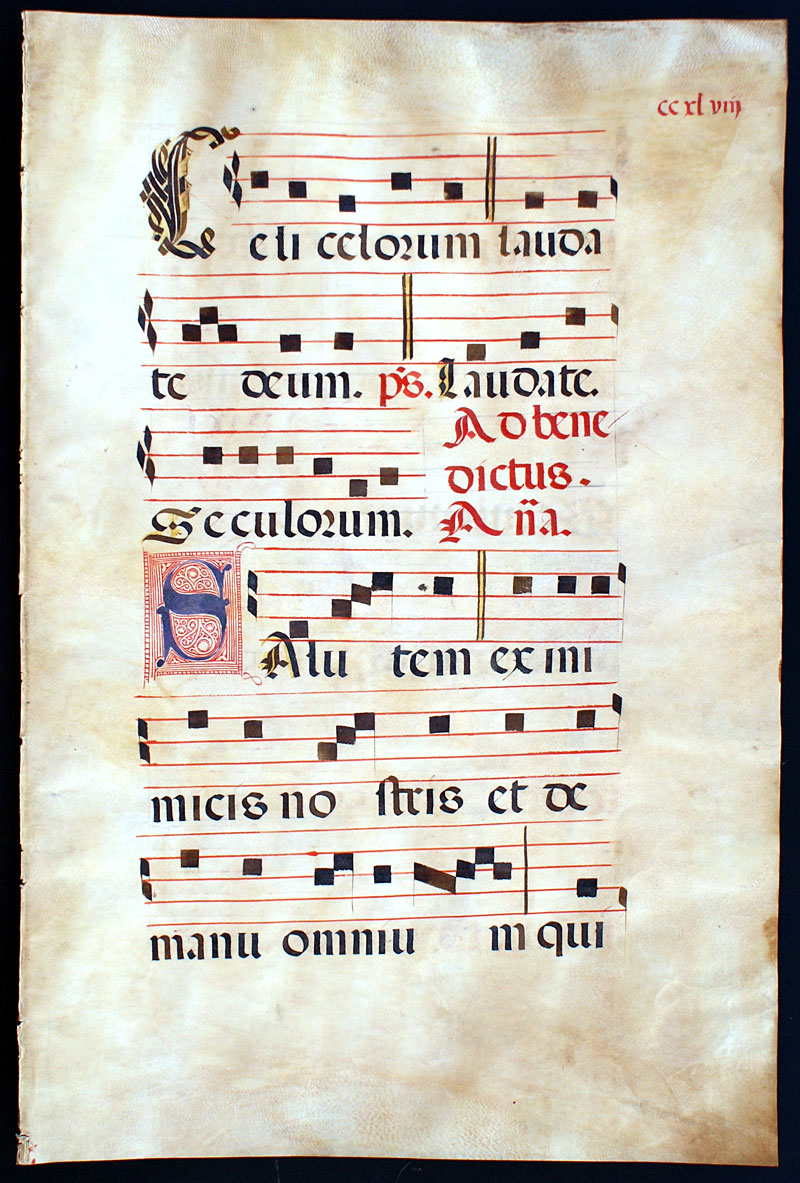 cc xl viiij
Celi celorum lauda
te deum. ps. Laudate.
Seculorum. Ad bene
dictus.
Aña.
SAlu tem ex ini
micis no stris et de
manu omniu m qui